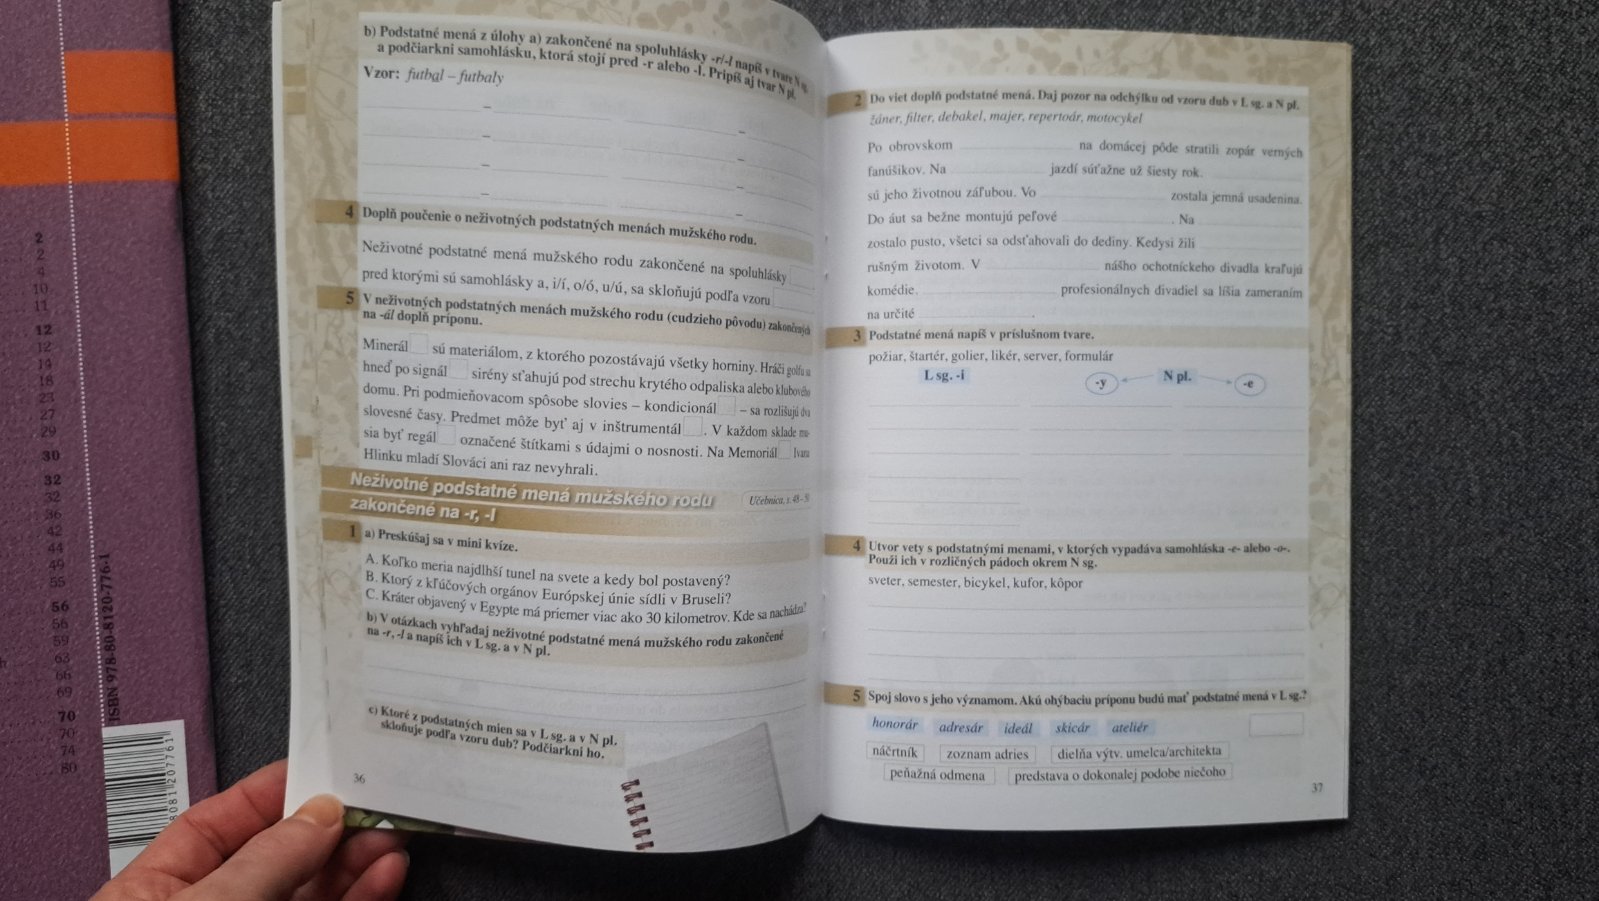 2
2
4
10
11
12
12
14
18
23
27
29
30
32
32
36
42
44
49
55
56
56
59
63
66
69
70
70
74
80
ISBN 978-80-8120-776-1
b) Podstatné mená z úlohy a) zakončené na spoluhlásky -r/-l napíš v tvare N sg.
a podčiarkni samohlásku, ktorá stojí pred -r alebo -l. Pripíš aj tvar N pl.
Vzor: futbal – futbaly
– –
– –
– –
– –
4 Doplň poučenie o neživotných podstatných menách mužského rodu.
Neživotné podstatné mená mužského rodu zakončené na spoluhlásky
pred ktorými sú samohlásky a, i/í, o/ó, u/ú, sa skloňujú podľa vzoru
5 V neživotných podstatných menách mužského rodu (cudzieho pôvodu) zakončených
na -ál doplň príponu.
Minerál sú materiálom, z ktorého pozostávajú všetky horniny. Hráči golfu sa
hneď po signál sirény sťahujú pod strechu krytého odpaliska alebo klubového
domu. Pri podmieňovacom spôsobe slovies – kondicionál – sa rozlišujú dva
slovesné časy. Predmet môže byť aj v inštrumentál . V každom sklade mu-
sia byť regál označené štítkami s údajmi o nosnosti. Na Memoriál Ivana
Hlinku mladí Slováci ani raz nevyhrali.
Neživotné podstatné mená mužského rodu
zakončené na -r, -l
Učebnica, s. 48 –
1 a) Preskúšaj sa v mini kvíze.
A. Koľko meria najdlhší tunel na svete a kedy bol postavený?
B. Ktorý z kľúčových orgánov Európskej únie sídli v Bruseli?
C. Kráter objavený v Egypte má priemer viac ako 30 kilometrov. Kde sa nachádza?
b) V otázkach vyhľadaj neživotné podstatné mená mužského rodu zakončené
na -r, -l a napíš ich v L sg. a v N pl.
c) Ktoré z podstatných mien sa v L sg. a v N pl.
skloňuje podľa vzoru dub? Podčiarkni ho.
36
2 Do viet doplň podstatné mená. Daj pozor na odchýlku od vzoru dub v L sg. a N pl.
žáner, filter, debakel, majer, repertoár, motocykel
Po obrovskom na domácej pôde stratili zopár verných
fanúšikov. Na jazdí súťažne už šiesty rok.
sú jeho životnou záľubou. Vo zostala jemná usadenina.
Do áut sa bežne montujú peľové . Na
zostalo pusto, všetci sa odsťahovali do dediny. Kedysi žili
rušným životom. V nášho ochotníckeho divadla kraľujú
komédie. profesionálnych divadiel sa líšia zameraním
na určité .
3 Podstatné mená napíš v príslušnom tvare.
požiar, štartér, golier, likér, server, formulár
L sg. -i -y N pl. -e
4 Utvor vety s podstatnými menami, v ktorých vypadáva samohláska -e- alebo -o-.
Použi ich v rozličných pádoch okrem N sg.
sveter, semester, bicykel, kufor, kôpor
5 Spoj slovo s jeho významom. Akú ohýbaciu príponu budú mať podstatné mená v L sg.?
honorár adresár ideál skicár ateliér
náčrtník zoznam adries dielňa výtv. umelca/architekta
peňažná odmena predstava o dokonalej podobe niečoho
37